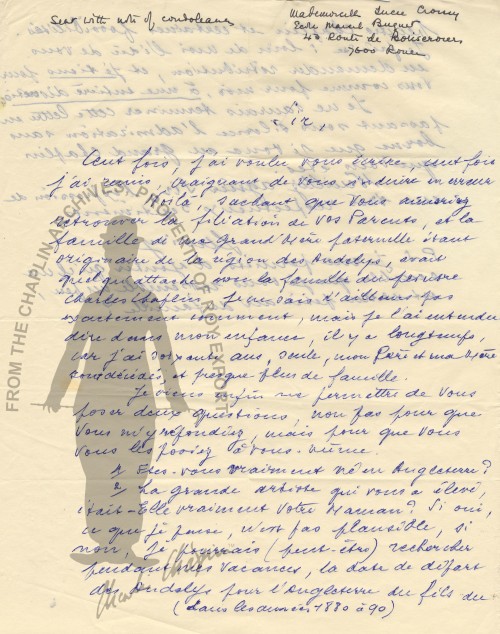 Sent with note of condolence
Mademoiselle Lucie
Ecole Marcel
40 Route de
76000 Rouen
Sir,
Cent fois, j'ai voulu vous écrire, cent fois
j'ai remis, craignant de vous induire en erreur
Voilà, sachant que vous aimeriez
retrouver la filiation de vos Parents, et la
famille de ma Grand'Mère paternelle étant
originaire de la région des Andelys, avait
quelque attache avec la famille du peintre
Charles Chaplin. Je ne sais d'ailleurs pas
exactement comment, mais je l'ai entendu
dire dans mon enfance, il y a longtemps,
car j'ai soixante ans, seule, mon Père et ma Mère
sont décédés, et presque plus de famille.
Je viens enfin me permettre de vous
poser deux questions, non pas pour que
vous m'y répondiez, mais pour que vous
vous les posiez à vous-même.
1 Etes-vous vraiment né en Angleterre?
2 La grande artiste qui vous a élevé,
était-Elle vraiment votre Maman? Si oui,
ce que je pense, n'est pas plausible, si
non, je pourrais (peut-être) rechercher
pendant mes vacances, la date de départ
des Andelys pour l'Angleterre du fils du
(dans les années 1880 à 90)
FROM THE CHAPLIN ARCHIVES, PROPERTY OF ROY EXPORT